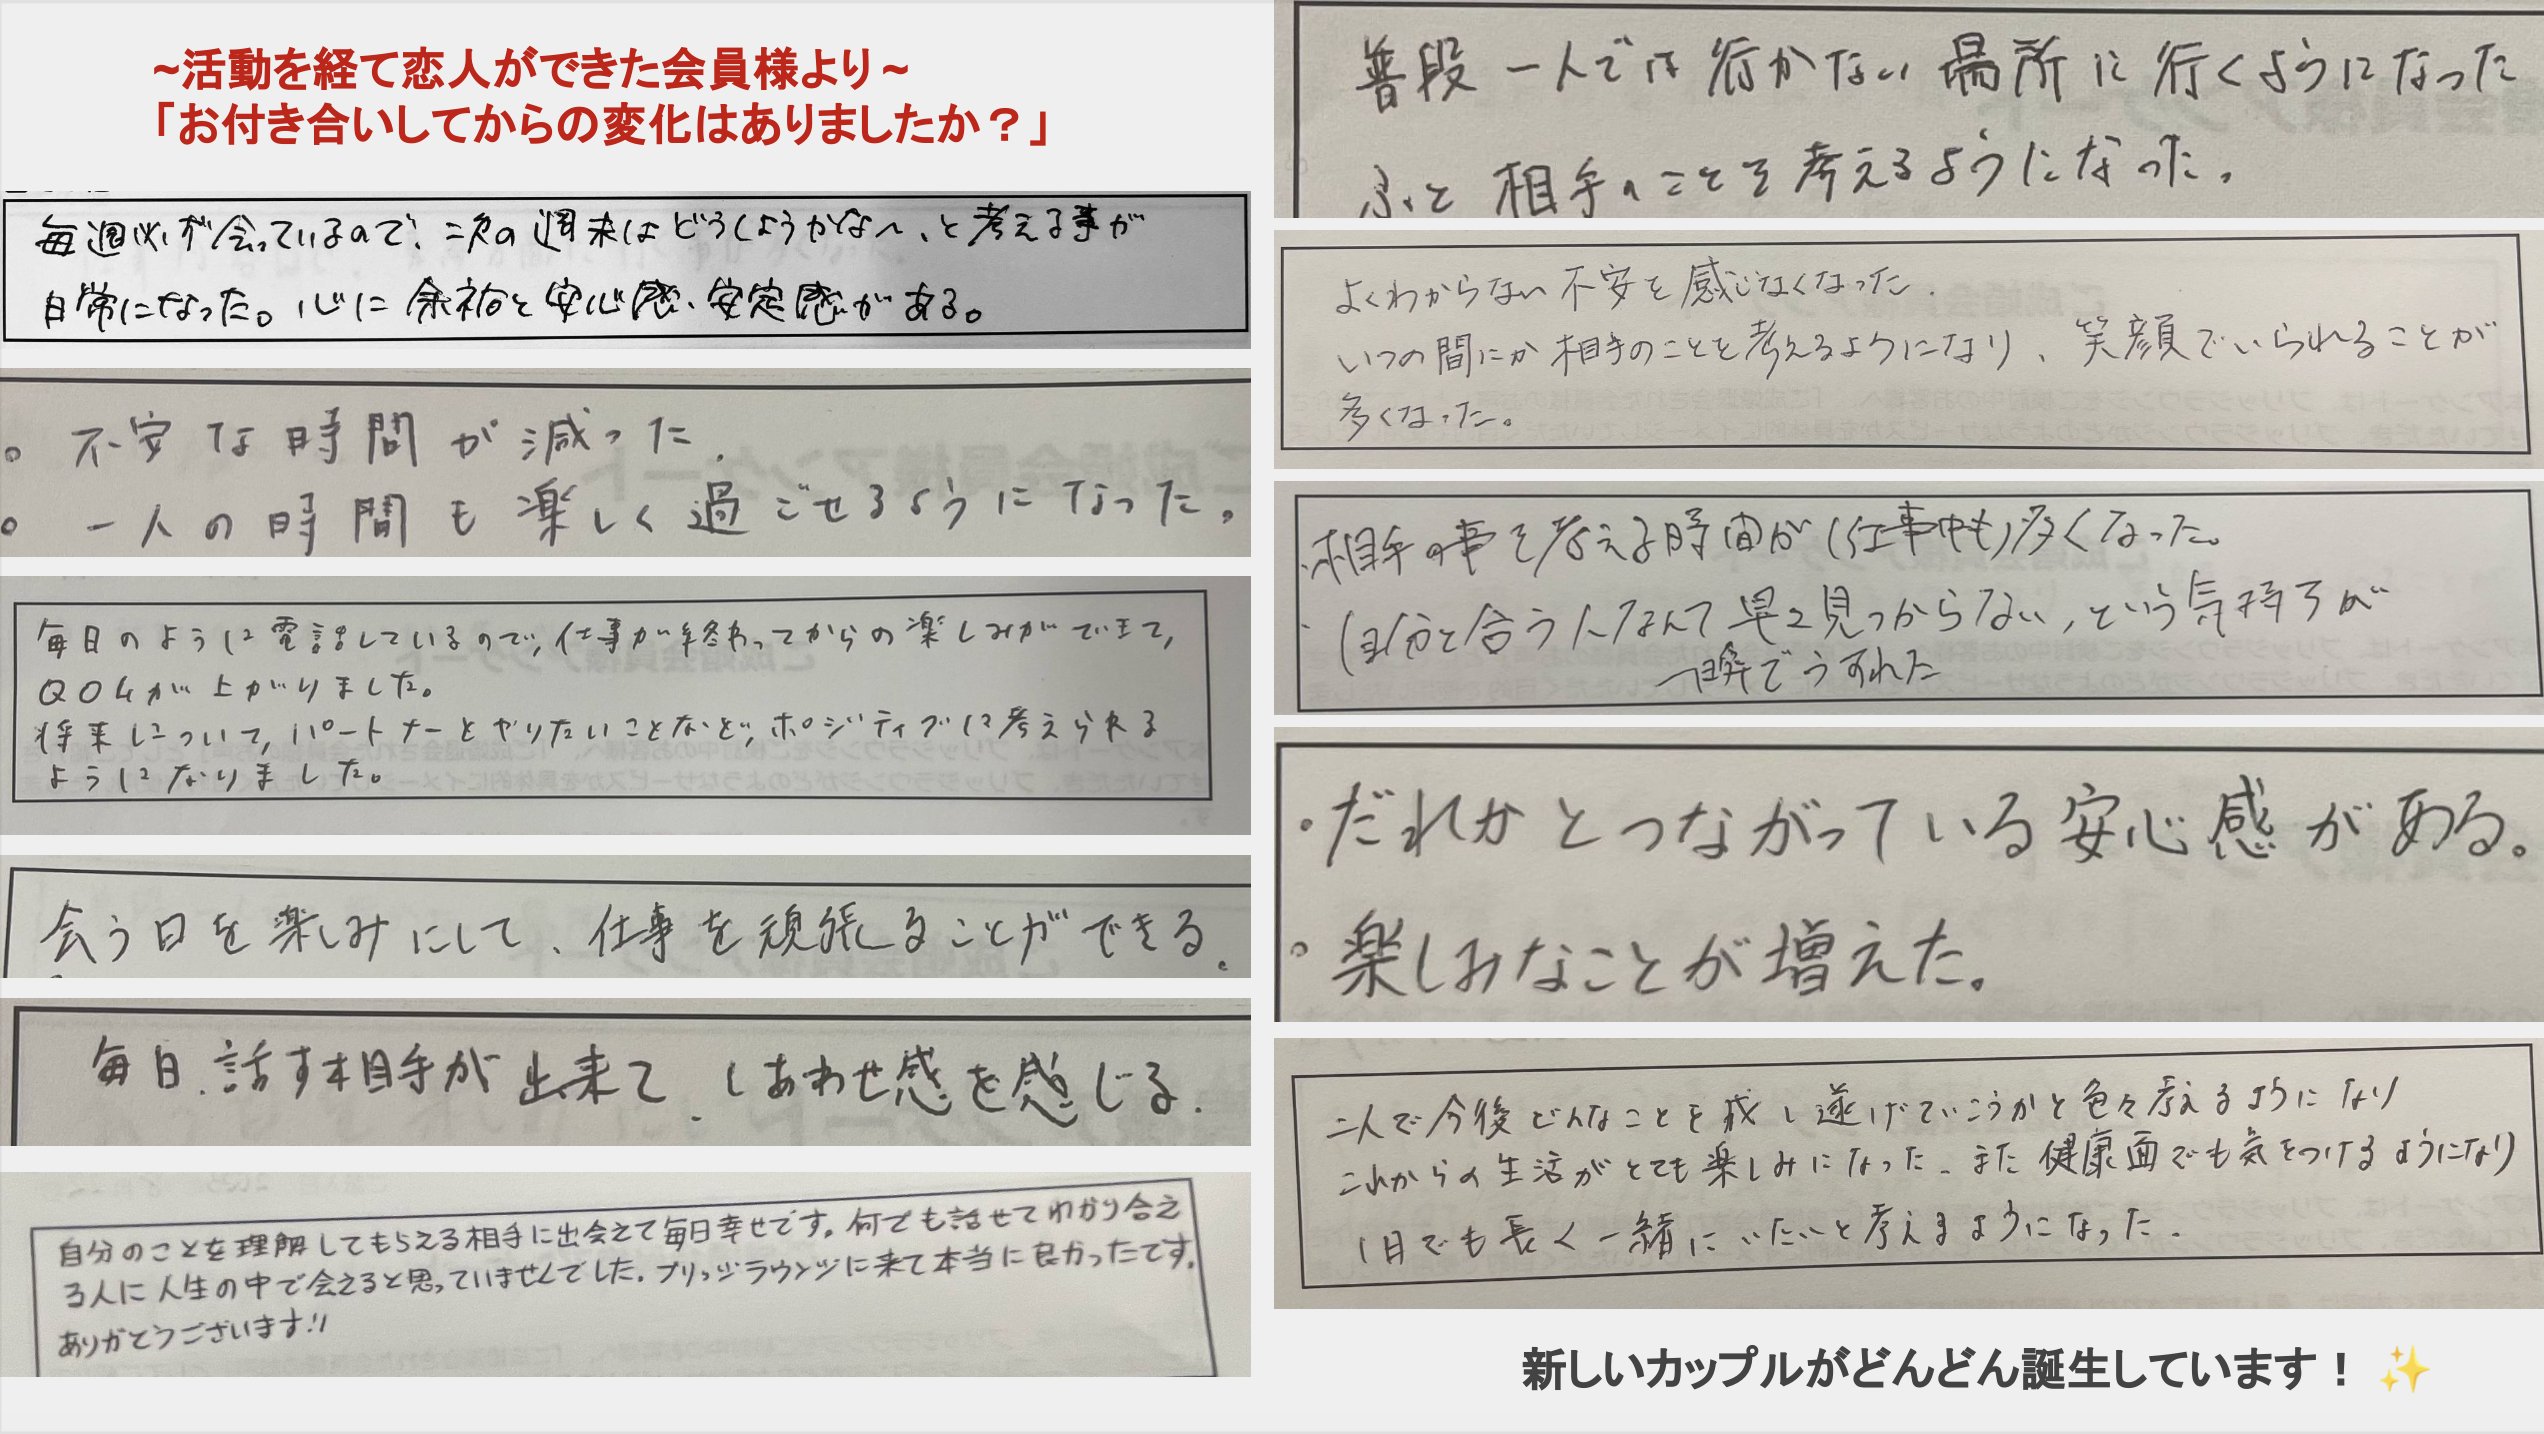 ~活動を経て恋人ができた会員様より~
「お付き合いしてからの変化はありましたか？」
毎週必ず会っているので、次の週末はどうしようかな〜、と考える事が
日常になった。心に余裕と安心感、安定感がある。
。不安な時間が減った。
。一人の時間も楽しく過ごせるようになった。
毎日のように電話しているので、仕事が終わってからの楽しみができて、
QOLが上がりました。
将来について、パートナーとやりたいことなど、ポジティブに考えられる
ようになりました。
会う日を楽しみにして、仕事を頑張ることができる。
毎日、話す相手が出来て、しあわせ感を感じる。
自分のことを理解してもらえる相手に出会えて毎日幸せです。何でも話せてわかり合え
る人に人生の中で会えると思っていませんでした。ブリッジラウンジに来て本当に良かったです。
ありがとうございます!!
普段一人では行かない場所に行くようになった
ふと相手のことを考えるようになった。
よくわからない不安を感じなくなった。
いつの間にか相手のことを考えるようになり、笑顔でいられることが
多くなった。
・相手の事を考える時間が(仕事中も)多くなった。
・(自分と合う人なんて早々見つからない、という気持ちが
一瞬でうすれた
・だれかとつながっている安心感がある。
・楽しみなことが増えた。
二人で今後どんなことを成し遂げていこうかと色々考えるようになり
これからの生活がとても楽しみになった。また健康面でも気をつけるようになり
1日でも長く一緒にいたいと考えるようになった。
新しいカップルがどんどん誕生しています！✨